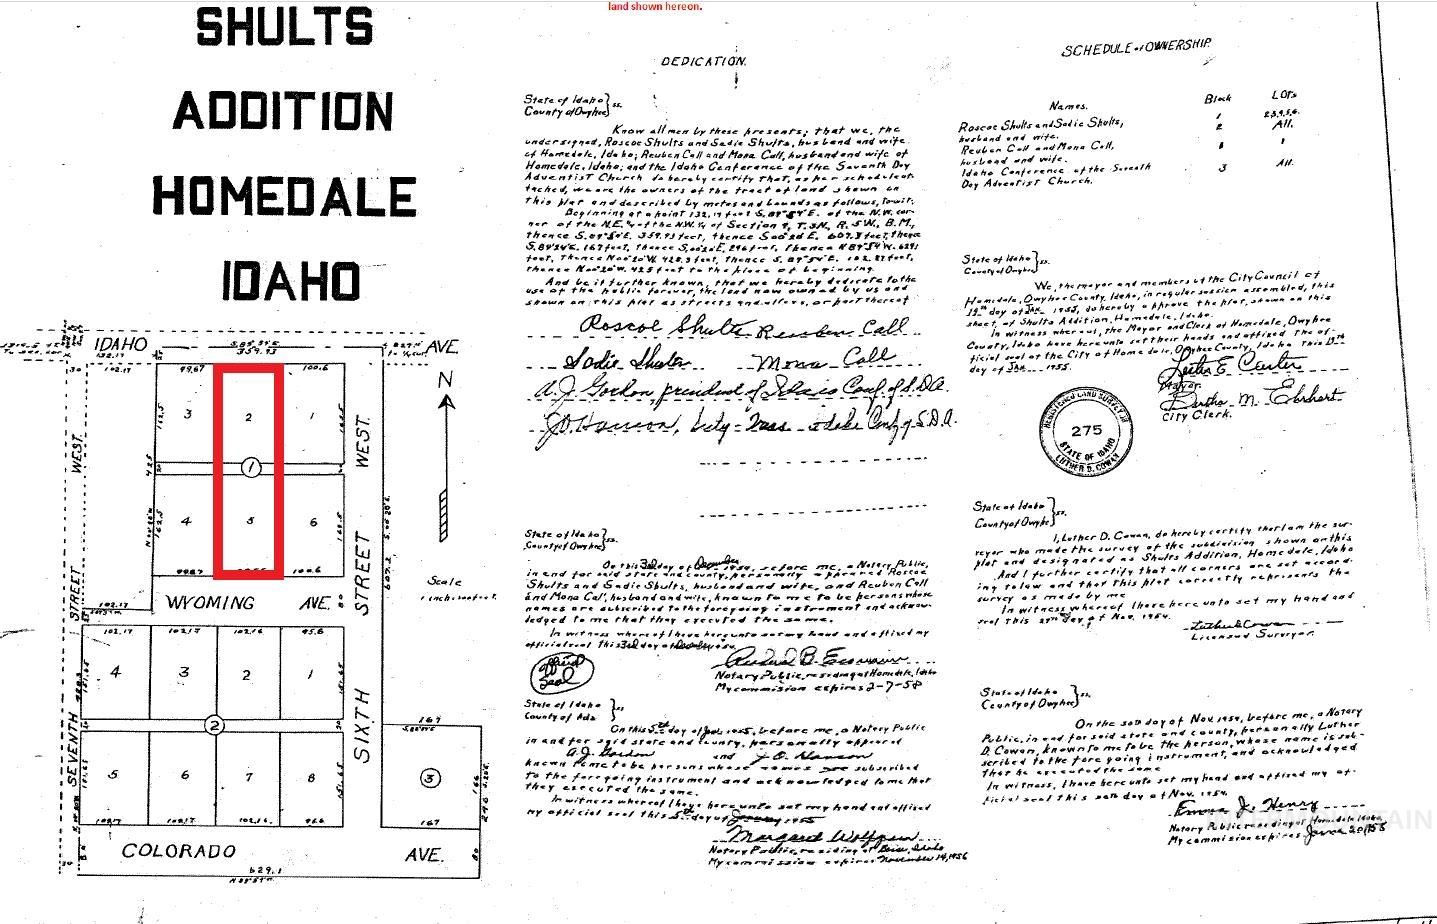 land shown hereon.
SHULTS
ADDITION
HOMEDALE
IDAHO
IDAHO AVE.
132.17
359.93
102.17 99.67 100.6
3 2 1
1
4 5 6
162.5
425
99.67 100.6
WEST.
STREET
SEVENTH
WEST.
STREET
SIXTH
N
Scale
1 inch=100 feet.
102.17
WYOMING AVE. 80
102.17 102.17 102.16 95.6
4 3 2 1
2
5 6 7 8
102.17 102.16
167
3
167
COLORADO AVE.
629.1
DEDICATION.
State of Idaho } ss.
County of Owyhee
Know all men by these presents; that we, the
undersigned, Roscoe Shults and Sadie Shults, husband and wife
of Homedale, Idaho; Reuben Call and Mona Call, husband and wife of
Homedale, Idaho; and the Idaho Conference of the Seventh Day
Adventist Church do hereby certify that, as per schedule at-
tached, we are the owners of the tract of land shown on
this plat and described by metes and bounds as follows, towit:
Beginning at a point 132.17 feet S.89°54'E. of the N.W. cor-
ner of the N.E.¼ of the N.W.¼ of Section 9, T.3N., R.5W., B.M.,
thence S.89°54'E. 359.93 feet, thence S.00°20'E. 607.3 feet, thence
S.89°54'E. 167 feet, thence S.00°20'E. 246 feet, thence N.89°54'W. 629.1
feet, thence N.00°20'W. 428.3 feet, thence S.89°54'E. 102.17 feet,
thence N.00°20'W. 425 feet to the place of beginning.
And be it further known, that we hereby dedicate to the
use of the public forever, the land now owned by us and
shown on this plat as streets and alleys, or part thereof
Roscoe Shults Reuben Call
Sadie Shults Mona Call
A.J. Gordon, president of Idaho Conf. of S.D.A.
J.O. Hanson, Idaho Conf. of S.D.A.
State of Idaho } ss.
County of Owyhee
On this 3rd day of December 1954, before me, a Notary Public,
in and for said state and county, personally appeared Roscoe
Shults and Sadie Shults, husband and wife, and Reuben Call
and Mona Call, husband and wife, known to me to be persons whose
names are subscribed to the foregoing instrument and acknow-
ledged to me that they executed the same.
In witness whereof I have hereunto set my hand and affixed my
official seal this 3rd day of December 1954.
Official
Seal
Notary Public, residing at Homedale, Idaho
My commission expires 2-7-58
State of Idaho } ss
County of Ada
On this 5th day of Jan. 1955, before me, a Notary Public
in and for said state and county, personally appeared
A.J. Gordon and J.O. Hanson
known to me to be persons whose names are subscribed
to the foregoing instrument and acknowledged to me that
they executed the same.
In witness whereof I have hereunto set my hand and affixed
my official seal this 5th day of January 1955
Margaret Wolfgram
Notary Public, residing at Boise, Idaho
My commission expires November 14, 1956
SCHEDULE of OWNERSHIP.
Names. Block LOTS
Roscoe Shults and Sadie Shults, 1 2,3,4,5,6.
husband and wife. 2 All.
Reuben Call and Mona Call, 1 1
husband and wife.
Idaho Conference of the Seventh 3 All.
Day Adventist Church.
State of Idaho } ss.
County of Owyhee
We, the mayor and members of the City Council of
Homedale, Owyhee County, Idaho, in regular session assembled, this
19th day of Jan. 1955, do hereby approve the plat, shown on this
sheet, of Shults Addition, Homedale, Idaho.
In witness whereof, the Mayor and Clerk of Homedale, Owyhee
County, Idaho have hereunto set their hands and affixed the of-
ficial seal of the City of Homedale, Owyhee County, Idaho this 19th
day of Jan. 1955.
Mayor.
Bertha M. Ehrhart
City Clerk.
REGISTERED LAND SURVEYOR
275
STATE OF IDAHO
LUTHER D. COWAN
State of Idaho } ss.
County of Owyhee
I, Luther D. Cowan, do hereby certify that I am the sur-
veyor who made the survey of the subdivision shown on this
plat and designated as Shults Addition, Homedale, Idaho
And I further certify that all corners are set accord-
ing to law and that this plat correctly represents the
survey as made by me
In witness whereof I have hereunto set my hand and
seal this 29th day of Nov. 1954.
Luther D Cowan
Licensed Surveyor.
State of Idaho } ss.
County of Owyhee
On the 30th day of Nov. 1954, before me, a Notary
Public, in and for said state and county, personally Luther
D. Cowan, known to me to be the person, whose name is sub-
scribed to the foregoing instrument, and acknowledged
that he executed the same
In witness, I have hereunto set my hand and affixed my of-
ficial seal this 30th day of Nov. 1954.
Emma J. Henry
Notary Public residing at Homedale Idaho
My commission expires June 20, 1955
INTERMOUNTAIN